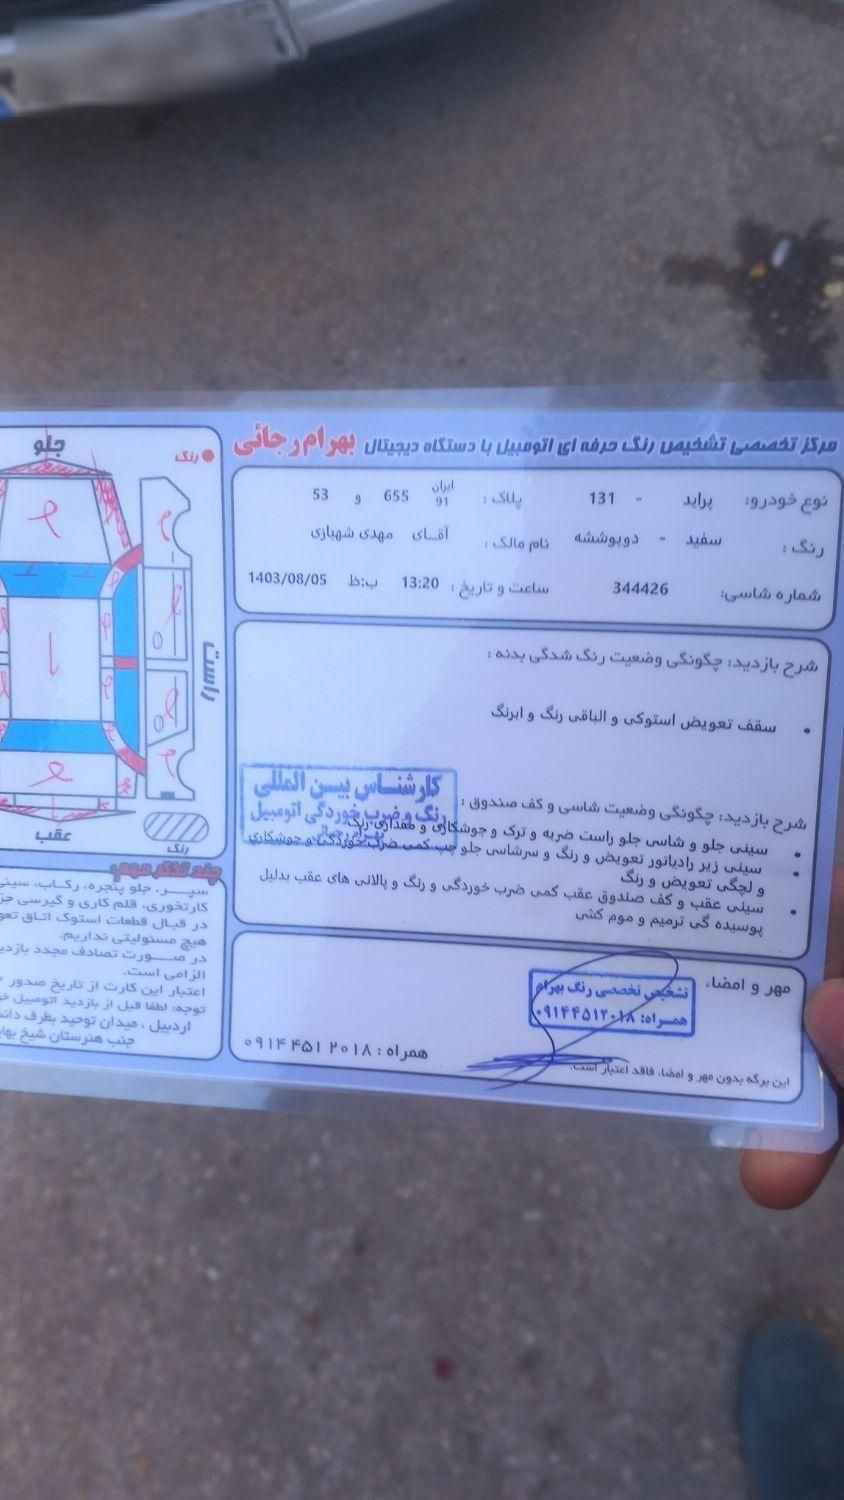 مرکز تخصصی تشخیص رنگ حرفه ای اتومبیل با دستگاه دیجیتال بهرام رجائی
نوع خودرو: پراید - 131 پلاک : ایران 91 655 و 53
رنگ : سفید - دوپوششه نام مالک : آقای مهدی شهبازی
شماره شاسی: 344426 ساعت و تاریخ : 13:20 ب:ظ 1403/08/05
شرح بازدید: چگونگی وضعیت رنگ شدگی بدنه :
• سقف تعویض استوکی و الباقی رنگ و ابرنگ
شرح بازدید: چگونگی وضعیت شاسی و کف صندوق :
• سینی جلو و شاسی جلو راست ضربه و ترک و جوشکاری و مقداری رنگ
• سینی زیر رادیاتور تعویض و رنگ و سرشاسی جلو چپ کمی ضرب خوردگی و جوشکاری
و لچگی تعویض و رنگ
• سینی عقب و کف صندوق عقب کمی ضرب خوردگی و رنگ و پالانی های عقب بدلیل
پوسیده گی ترمیم و موم کشی
کارشناس بین المللی
رنگ و ضرب خوردگی اتومبیل
مهر و امضاء
تشخیص تخصصی رنگ بهرام
همراه: ۰۹۱۴۴۵۱۲۰۱۸
همراه : ۰۹۱۴ ۴۵۱ ۲۰۱۸
این برگه بدون مهر و امضا، فاقد اعتبار است.
رنگ
جلو
راست
عقب
رنگ
چند تذکر مهم:
سپر، جلو پنجره، رکاب، سینی
کارتخوری، قلم کاری و گیرسی جز
در قبال قطعات استوک اتاق تعو
هیچ مسئولیتی نداریم.
در صورت تصادف مجدد بازدید
الزامی است.
اعتبار این کارت از تاریخ صدور
توجه: لطفا قبل از بازدید اتومبیل خو
اردبیل ، میدان توحید بطرف دانش
جنب هنرستان شیخ بهایی